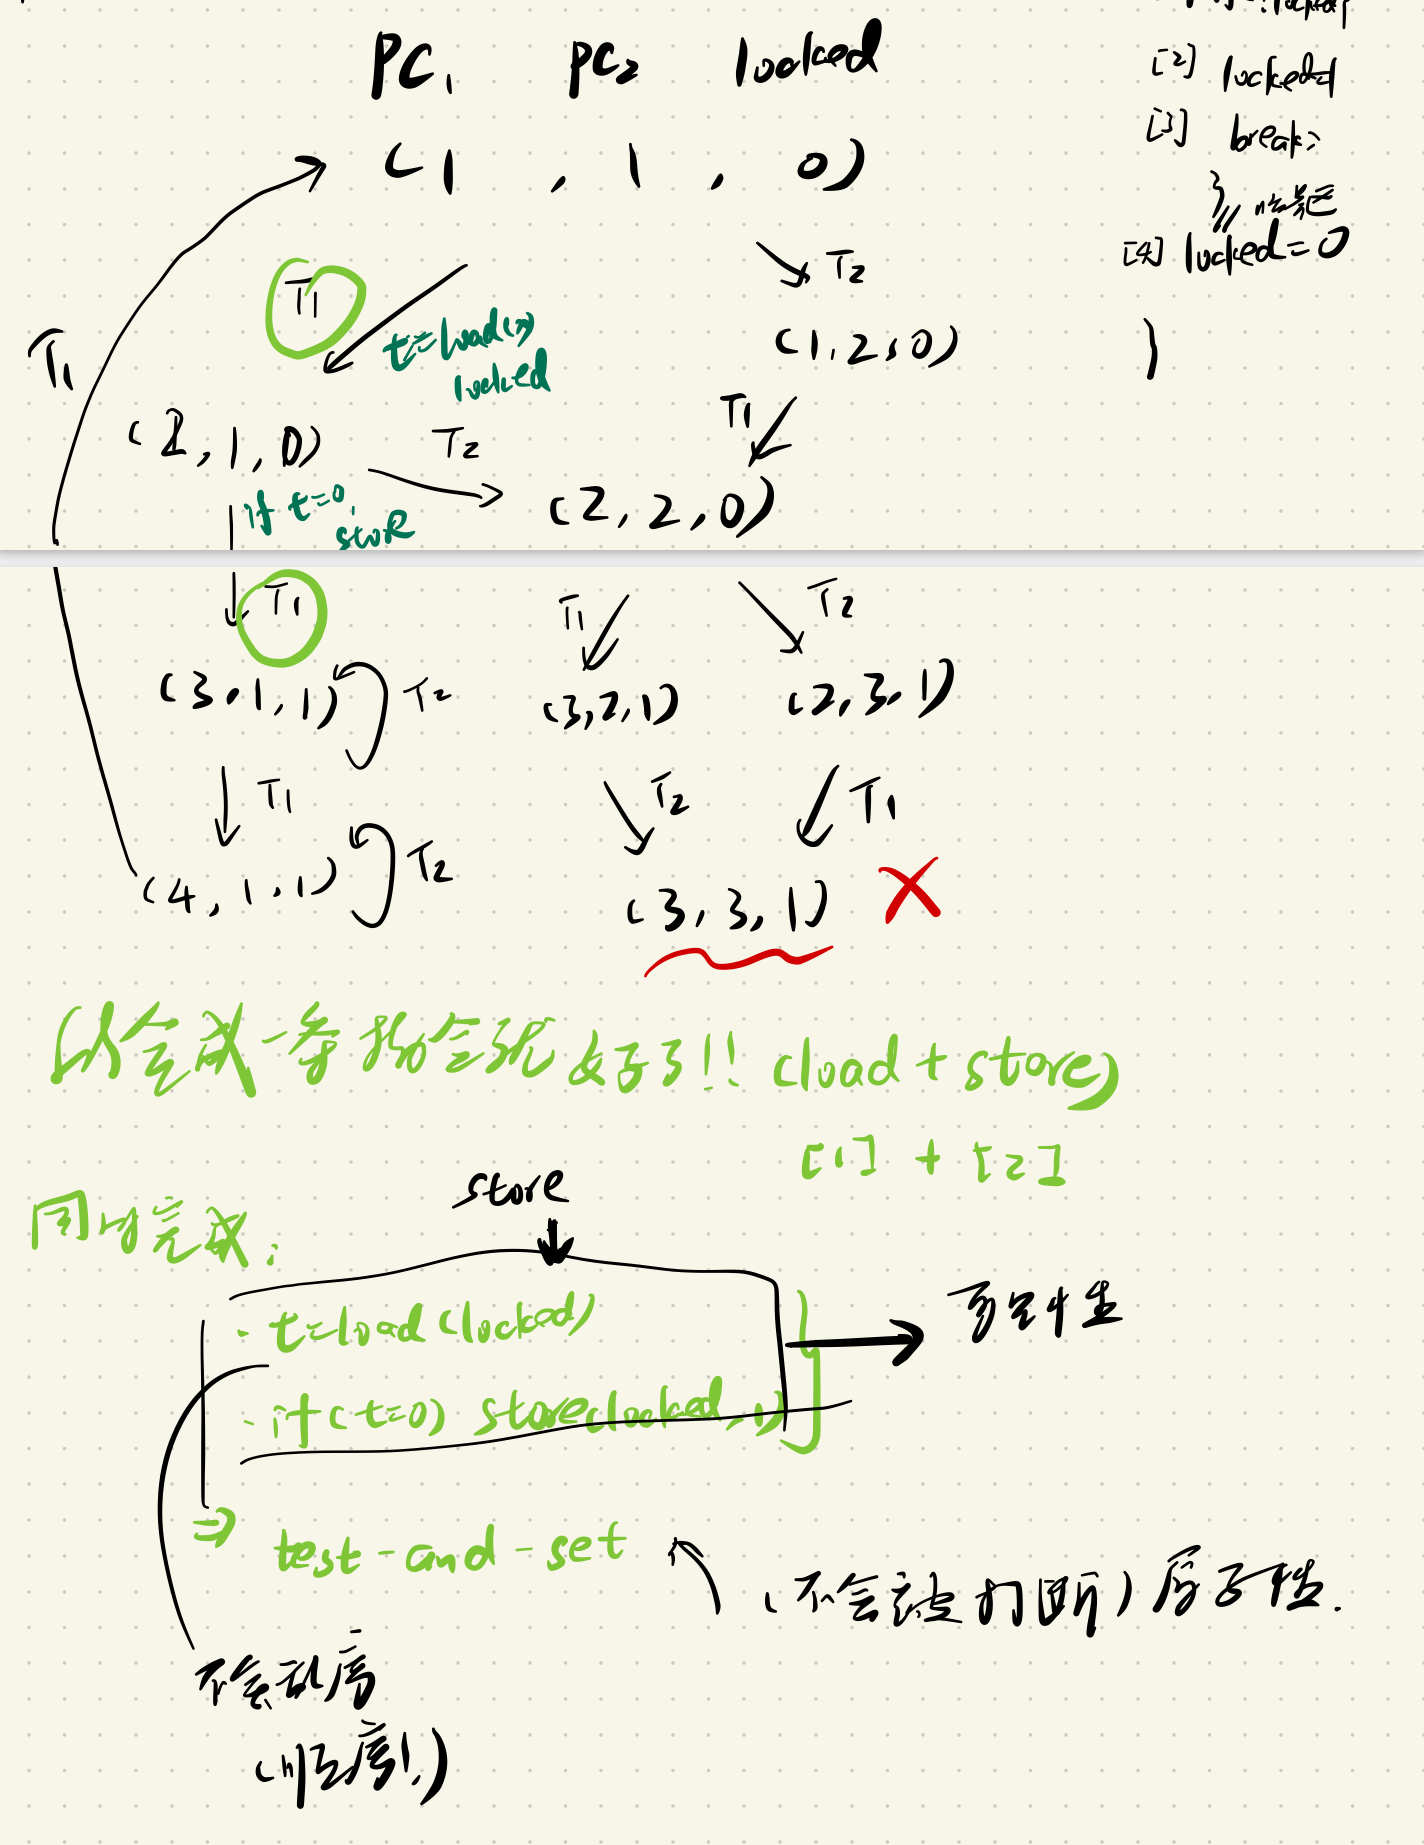 PC₁ PC₂ locked
(1, 1, 0)
[2] locked=1
[3] break;
}//
[4] locked=0
}
T₁
T₁
t=load(x)
locked
T₂
(1,2,0)
T₁
(2,1,0)
T₂
(2,2,0)
if t=0,
store
T₁
T₁
T₂
(3,1,1)
T₂
(3,2,1)
(2,3,1)
T₁
T₂
T₁
(4,1,1)
T₂
(3,3,1)
合成一条指令就好了!! (load + store)
[1] + [2]
store
同时完成:
· t=load(locked)
可见性
· if(t=0) store(locked,1)
⇒ test-and-set
(不会被打断)原子性.
不会乱序
(顺序!)